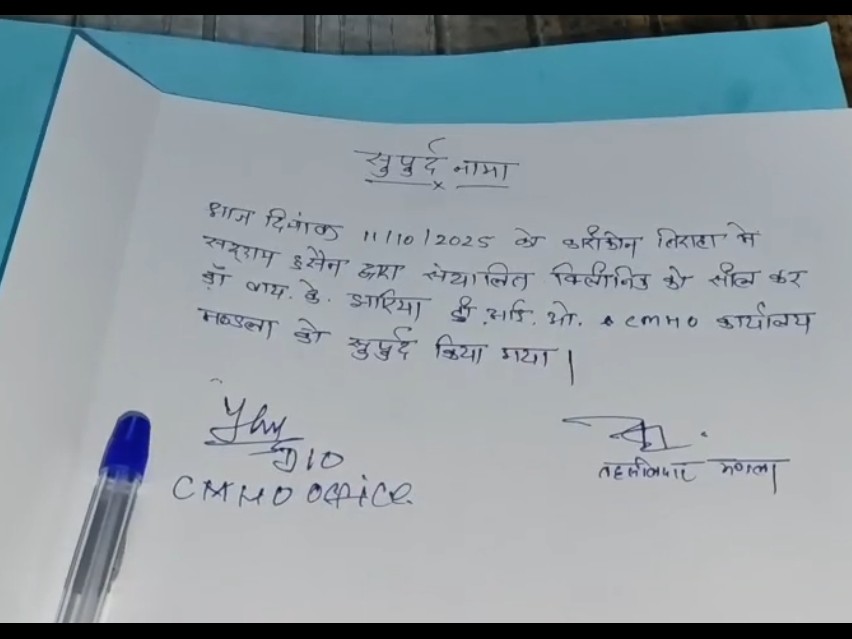 सुपुर्द नामा
आज दिनांक 11/10/2025 को कारीकोन तिराहा मे
सद्दाम हुसैन द्वारा संचालित क्लीनिक को सील कर
डॉ वाय. के. झारिया डी.आई.ओ. CMHO कार्यालय
मण्डला को सुपुर्द किया गया।
DIO
CMHO Office
तहसीलदार मण्डला